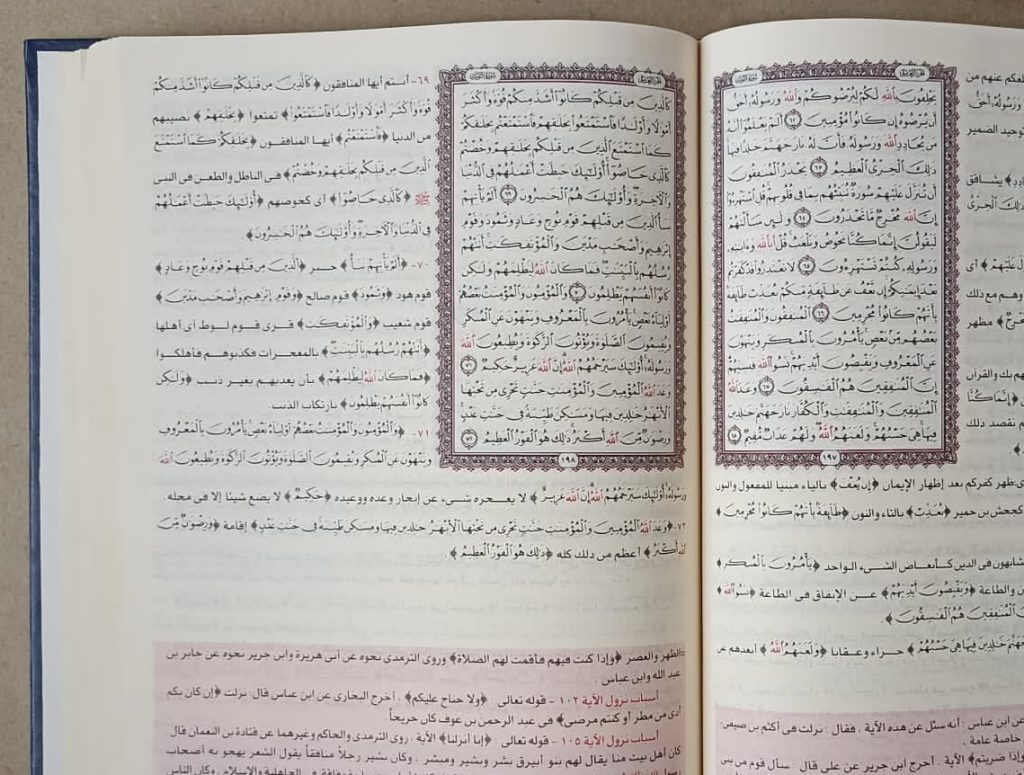 يَحْلِفُونَ بِٱللَّهِ لَكُمْ لِيُرْضُوكُمْ وَٱللَّهُ وَرَسُولُهُۥٓ أَحَقُّ
أَن يُرْضُوهُ إِن كَانُوا۟ مُؤْمِنِينَ ٦٢ أَلَمْ يَعْلَمُوٓا۟ أَنَّهُۥ
مَن يُحَادِدِ ٱللَّهَ وَرَسُولَهُۥ فَأَنَّ لَهُۥ نَارَ جَهَنَّمَ خَٰلِدًا فِيهَا
ذَٰلِكَ ٱلْخِزْىُ ٱلْعَظِيمُ ٦٣ يَحْذَرُ ٱلْمُنَٰفِقُونَ
أَن تُنَزَّلَ عَلَيْهِمْ سُورَةٌ تُنَبِّئُهُم بِمَا فِى قُلُوبِهِمْ قُلِ ٱسْتَهْزِءُوٓا۟
إِنَّ ٱللَّهَ مُخْرِجٌ مَّا تَحْذَرُونَ ٦٤ وَلَئِن سَأَلْتَهُمْ
لَيَقُولُنَّ إِنَّمَا كُنَّا نَخُوضُ وَنَلْعَبُ قُلْ أَبِٱللَّهِ وَءَايَٰتِهِۦ
وَرَسُولِهِۦ كُنتُمْ تَسْتَهْزِءُونَ ٦٥ لَا تَعْتَذِرُوا۟ قَدْ كَفَرْتُم
بَعْدَ إِيمَٰنِكُمْ إِن نَّعْفُ عَن طَآئِفَةٍ مِّنكُمْ نُعَذِّبْ طَآئِفَةًۢ
بِأَنَّهُمْ كَانُوا۟ مُجْرِمِينَ ٦٦ ٱلْمُنَٰفِقُونَ وَٱلْمُنَٰفِقَٰتُ
بَعْضُهُم مِّنۢ بَعْضٍ يَأْمُرُونَ بِٱلْمُنكَرِ وَيَنْهَوْنَ
عَنِ ٱلْمَعْرُوفِ وَيَقْبِضُونَ أَيْدِيَهُمْ نَسُوا۟ ٱللَّهَ فَنَسِيَهُمْ
إِنَّ ٱلْمُنَٰفِقِينَ هُمُ ٱلْفَٰسِقُونَ ٦٧ وَعَدَ ٱللَّهُ
ٱلْمُنَٰفِقِينَ وَٱلْمُنَٰفِقَٰتِ وَٱلْكُفَّارَ نَارَ جَهَنَّمَ خَٰلِدِينَ
فِيهَا هِىَ حَسْبُهُمْ وَلَعَنَهُمُ ٱللَّهُ وَلَهُمْ عَذَابٌ مُّقِيمٌ ٦٨
١٩٧
عنهم من
وَرَسُولُهُۥٓ أَحَقُّ
توحيد الضمير
يشاقق
ذَٰلِكَ ٱلْخِزْىُ
عَلَيْهِمْ﴾ أى
وهم مع ذلك
مظهر
بك والقرآن
﴿إِنَّمَا كُنَّا
نقصد ذلك
ظهر كفركم بعد إظهار الإيمان ﴿إِن يُعْفَ﴾ بالياء مبنيا للمفعول والنون
كجحش بن حمير ﴿تُعَذَّبْ﴾ بالتاء والنون ﴿طَآئِفَةًۢ بِأَنَّهُمْ كَانُوا۟ مُجْرِمِينَ﴾
متشابهون فى الدين كأبعاض الشىء الواحد ﴿يَأْمُرُونَ بِٱلْمُنكَرِ﴾
والطاعة ﴿وَيَقْبِضُونَ أَيْدِيَهُمْ﴾ عن الإنفاق فى الطاعة ﴿نَسُوا۟ ٱللَّهَ﴾
ٱلْمُنَٰفِقِينَ هُمُ ٱلْفَٰسِقُونَ﴾
جَهَنَّمَ خَٰلِدِينَ فِيهَا هِىَ حَسْبُهُمْ﴾ جزاء وعقابا ﴿وَلَعَنَهُمُ ٱللَّهُ﴾ أبعدهم عن
عن ابن عباس : أنه سئل عن هذه الآية . فقال : نزلت فى أكثم بن صيفى .
خاصة عامة .
ضربتم﴾ الآية . أخرج ابن جرير عن على قال : سأل قوم من بنى
كَٱلَّذِينَ مِن قَبْلِكُمْ كَانُوٓا۟ أَشَدَّ مِنكُمْ قُوَّةً وَأَكْثَرَ
أَمْوَٰلًا وَأَوْلَٰدًا فَٱسْتَمْتَعُوا۟ بِخَلَٰقِهِمْ فَٱسْتَمْتَعْتُم بِخَلَٰقِكُمْ
كَمَا ٱسْتَمْتَعَ ٱلَّذِينَ مِن قَبْلِكُم بِخَلَٰقِهِمْ وَخُضْتُمْ
كَٱلَّذِى خَاضُوٓا۟ أُو۟لَٰٓئِكَ حَبِطَتْ أَعْمَٰلُهُمْ فِى ٱلدُّنْيَا
وَٱلْءَاخِرَةِ وَأُو۟لَٰٓئِكَ هُمُ ٱلْخَٰسِرُونَ ٦٩ أَلَمْ يَأْتِهِمْ
نَبَأُ ٱلَّذِينَ مِن قَبْلِهِمْ قَوْمِ نُوحٍ وَعَادٍ وَثَمُودَ وَقَوْمِ
إِبْرَٰهِيمَ وَأَصْحَٰبِ مَدْيَنَ وَٱلْمُؤْتَفِكَٰتِ أَتَتْهُمْ
رُسُلُهُم بِٱلْبَيِّنَٰتِ فَمَا كَانَ ٱللَّهُ لِيَظْلِمَهُمْ وَلَٰكِن
كَانُوٓا۟ أَنفُسَهُمْ يَظْلِمُونَ ٧٠ وَٱلْمُؤْمِنُونَ وَٱلْمُؤْمِنَٰتُ بَعْضُهُمْ
أَوْلِيَآءُ بَعْضٍ يَأْمُرُونَ بِٱلْمَعْرُوفِ وَيَنْهَوْنَ عَنِ ٱلْمُنكَرِ
وَيُقِيمُونَ ٱلصَّلَوٰةَ وَيُؤْتُونَ ٱلزَّكَوٰةَ وَيُطِيعُونَ ٱللَّهَ
وَرَسُولَهُۥٓ أُو۟لَٰٓئِكَ سَيَرْحَمُهُمُ ٱللَّهُ إِنَّ ٱللَّهَ عَزِيزٌ حَكِيمٌ ٧١
وَعَدَ ٱللَّهُ ٱلْمُؤْمِنِينَ وَٱلْمُؤْمِنَٰتِ جَنَّٰتٍ تَجْرِى مِن تَحْتِهَا
ٱلْأَنْهَٰرُ خَٰلِدِينَ فِيهَا وَمَسَٰكِنَ طَيِّبَةً فِى جَنَّٰتِ عَدْنٍ
وَرِضْوَٰنٌ مِّنَ ٱللَّهِ أَكْبَرُ ذَٰلِكَ هُوَ ٱلْفَوْزُ ٱلْعَظِيمُ ٧٢
١٩٨
٦٩- أنتم أيها المنافقون ﴿كَٱلَّذِينَ مِن قَبْلِكُمْ كَانُوٓا۟ أَشَدَّ مِنكُمْ
قُوَّةً وَأَكْثَرَ أَمْوَٰلًا وَأَوْلَٰدًا فَٱسْتَمْتَعُوا۟﴾ تمتعوا ﴿بِخَلَٰقِهِمْ﴾ نصيبهم
من الدنيا ﴿فَٱسْتَمْتَعْتُم﴾ أيها المنافقون ﴿بِخَلَٰقِكُمْ كَمَا ٱسْتَمْتَعَ
ٱلَّذِينَ مِن قَبْلِكُم بِخَلَٰقِهِمْ وَخُضْتُمْ﴾ فى الباطل والطعن فى النبى
ﷺ ﴿كَٱلَّذِى خَاضُوٓا۟﴾ أى كخوضهم ﴿أُو۟لَٰٓئِكَ حَبِطَتْ أَعْمَٰلُهُمْ
فِى ٱلدُّنْيَا وَٱلْءَاخِرَةِ وَأُو۟لَٰٓئِكَ هُمُ ٱلْخَٰسِرُونَ﴾
٧٠- ﴿أَلَمْ يَأْتِهِمْ نَبَأُ﴾ خبر ﴿ٱلَّذِينَ مِن قَبْلِهِمْ قَوْمِ نُوحٍ وَعَادٍ﴾
قوم هود ﴿وَثَمُودَ﴾ قوم صالح ﴿وَقَوْمِ إِبْرَٰهِيمَ وَأَصْحَٰبِ مَدْيَنَ﴾
قوم شعيب ﴿وَٱلْمُؤْتَفِكَٰتِ﴾ قرى قوم لوط أى أهلها
﴿أَتَتْهُمْ رُسُلُهُم بِٱلْبَيِّنَٰتِ﴾ بالمعجزات فكذبوهم فأهلكوا
﴿فَمَا كَانَ ٱللَّهُ لِيَظْلِمَهُمْ﴾ بأن يعذبهم بغير ذنب ﴿وَلَٰكِن
كَانُوٓا۟ أَنفُسَهُمْ يَظْلِمُونَ﴾ بارتكاب الذنب.
٧١- ﴿وَٱلْمُؤْمِنُونَ وَٱلْمُؤْمِنَٰتُ بَعْضُهُمْ أَوْلِيَآءُ بَعْضٍ يَأْمُرُونَ بِٱلْمَعْرُوفِ
وَيَنْهَوْنَ عَنِ ٱلْمُنكَرِ وَيُقِيمُونَ ٱلصَّلَوٰةَ وَيُؤْتُونَ ٱلزَّكَوٰةَ وَيُطِيعُونَ ٱللَّهَ
وَرَسُولَهُۥٓ أُو۟لَٰٓئِكَ سَيَرْحَمُهُمُ ٱللَّهُ إِنَّ ٱللَّهَ عَزِيزٌ﴾ لا يعجزه شىء عن إنجاز وعده ووعيده ﴿حَكِيمٌ﴾ لا يضع شيئا إلا فى محله.
٧٢- ﴿وَعَدَ ٱللَّهُ ٱلْمُؤْمِنِينَ وَٱلْمُؤْمِنَٰتِ جَنَّٰتٍ تَجْرِى مِن تَحْتِهَا ٱلْأَنْهَٰرُ خَٰلِدِينَ فِيهَا وَمَسَٰكِنَ طَيِّبَةً فِى جَنَّٰتِ عَدْنٍ﴾ إقامة ﴿وَرِضْوَٰنٌ مِّنَ
ٱللَّهِ أَكْبَرُ﴾ أعظم من ذلك كله ﴿ذَٰلِكَ هُوَ ٱلْفَوْزُ ٱلْعَظِيمُ﴾
=الظهر والعصر ﴿وإذا كنت فيهم فأقمت لهم الصلاة﴾ وروى الترمذى نحوه عن أبى هريرة وابن جرير نحوه عن جابر بن
عبد الله وابن عباس .
أسباب نزول الآية ١٠٢ - قوله تعالى ﴿ولا جناح عليكم﴾ . أخرج البخارى عن ابن عباس قال : نزلت ﴿إن كان بكم
أذى من مطر أو كنتم مرضى﴾ فى عبد الرحمن بن عوف كان جريحاً .
أسباب نزول الآية ١٠٥ - قوله تعالى : ﴿إنا أنزلنا﴾ الآية . روى الترمذى والحاكم وغيرهما عن قتادة بن النعمان قال
كان أهل بيت منا يقال لهم بنو أبيرق بشر وبشير ومبشر . وكان بشير رجلاً منافقاً يقول الشعر يهجو به أصحاب